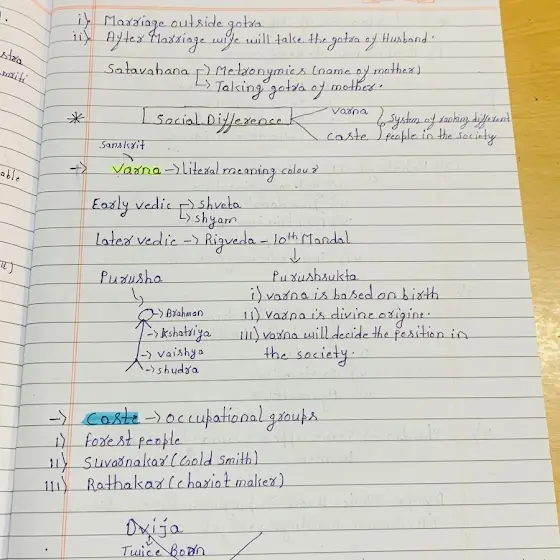 i) Marriage outside gotra
ii) After Marriage wife will take the gotra of Husband.
Satavahana → Metronymics (name of mother)
→ Taking gotra of mother.
* Social Difference
varna
caste
System of ranking different
people in the society
sanskrit
→ varna → Literal meaning colour
Early vedic → Shveta
→ shyam
Later vedic → Rigveda - 10th Mandal
Purusha
Purushsukta
→ Brahman
→ kshatriya
→ vaishya
→ shudra
i) varna is based on birth
ii) varna is divine origine.
iii) varna will decide the position in
the society.
→ Caste → occupational groups
i) Forest people
ii) Suvarnakar (Gold Smith)
iii) Rathakar (chariot maker)
Dvija
Twice Born
able